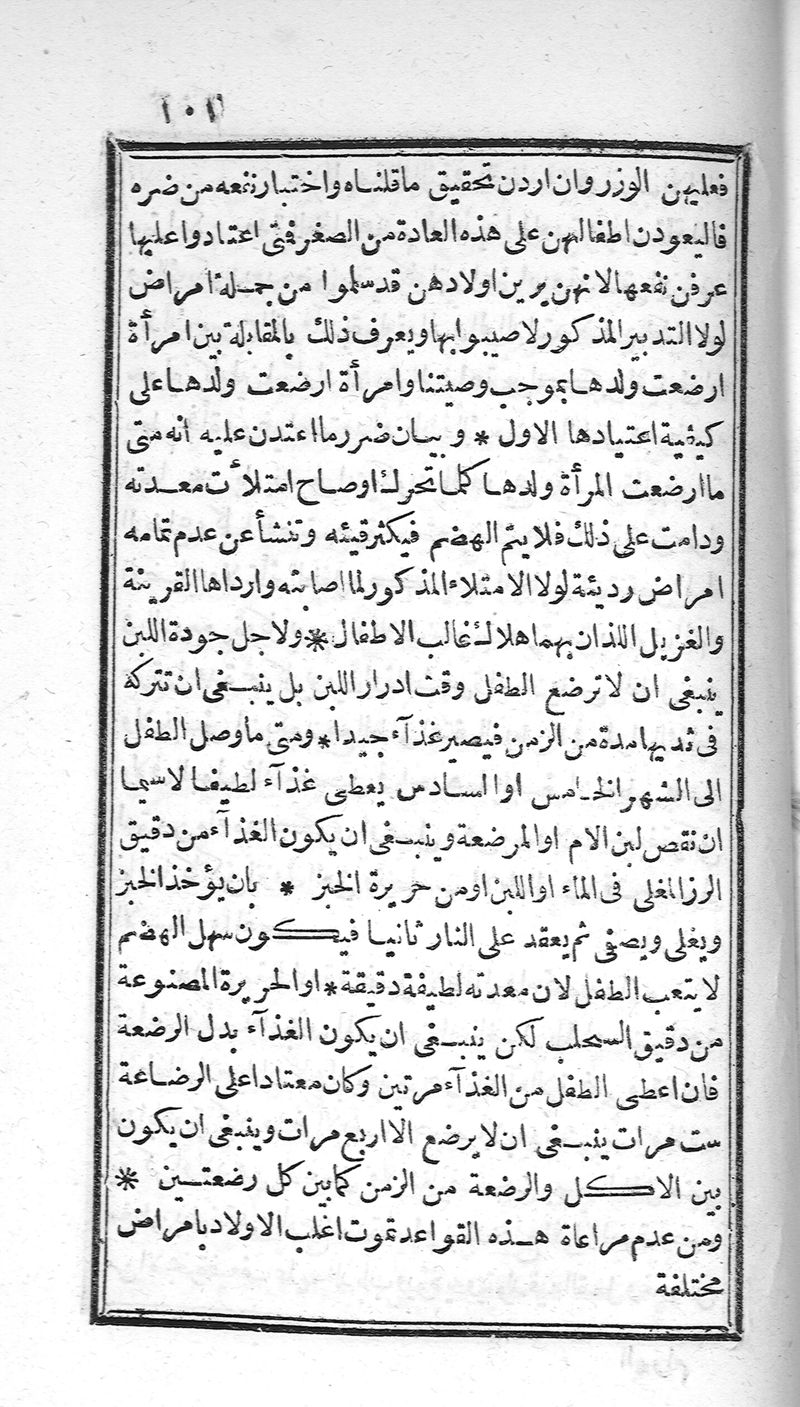 ١٠١
فعليهن الوزر وان اردن تحقيق ماقلناه واختبار نفعه من ضره
فاليعودن اطفالهن على هذه العادة من الصغر فمتى اعتادوا عليها
عرفن نفعها لانهن يرين اولادهن قد سلموا من جملة امراض
لولا التدبير المذكور لاصيبوا بها ويعرف ذلك بالمقابلة بين امرأة
ارضعت ولدها بموجب وصيتنا وامرأة ارضعت ولدها على
كيفية اعتيادها الاول * وبيان ضرر ما اعتدن عليه انه متى
ما ارضعت المرأة ولدها كلما تحرك او صاح امتلأت معدته
ودامت على ذلك فلا يتم الهضم فيكثر قيئه وتنشأ عن عدم تمامه
امراض رديئة لولا الامتلاء المذكور لما اصابته وارداها القرينة
والغزيل اللذان بهما هلاك غالب الاطفال * ولاجل جودة اللبن
ينبغى ان لا ترضع الطفل وقت ادرار اللبن بل ينبغى ان تتركه
فى ثديها مدة من الزمن فيصير غذآء جيدا * ومتى ما وصل الطفل
الى الشهر الخامس او السادس يعطى غذآء لطيفا لاسيما
ان نقص لبن الام او المرضعة وينبغى ان يكون الغذآء من دقيق
الرز المغلى فى الماء او اللبن او من حريرة الخبز * بان يؤخذ الخبز
ويغلى ويصفى ثم يعقد على النار ثانيا فيكون سهل الهضم
لا يتعب الطفل لان معدته لطيفة دقيقة * او الحريرة المصنوعة
من دقيق السحلب لكن ينبغى ان يكون الغذآء بدل الرضعة
فان اعطى الطفل من الغذآء مرتين وكان معتادا على الرضاعة
ست مرات ينبغى ان لا يرضع الا اربع مرات وينبغى ان يكون
بين الاكل والرضعة من الزمن كما بين كل رضعتين *
ومن عدم مراعاة هذه القواعد تموت اغلب الاولاد بامراض
مختلفة